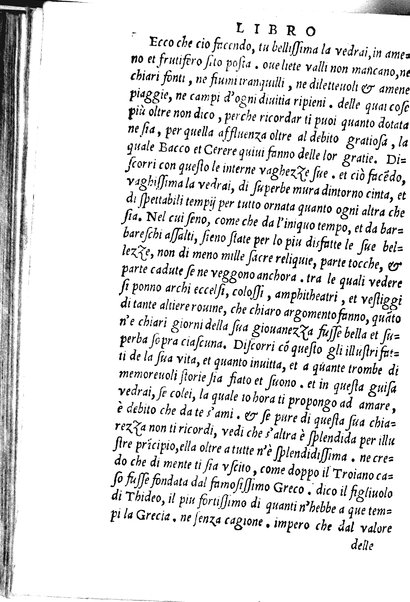 LIBRO
Ecco che cio facendo, tu bellissima la vedrai, in ame-
no et frutifero sito posta. oue liete valli non mancano, ne
chiari fonti, ne fiumi tranquilli, ne diletteuoli & amene
piaggie, ne campi d'ogni diuitia ripieni. delle quai cose
più oltre non dico, perche ricordar ti puoi quanto dotata
ne sia, per quella affluenza oltre al debito gratiosa, la
quale Bacco et Cerere quiui fanno delle lor gratie. Di-
scorri con questo le interne vaghezze sue. et ciò facēdo,
vaghissima la vedrai, di superbe mura dintorno cinta, et
di spettabili tempij per tutto ornata quanto ogni altra che
sia. Nel cui seno, come che da l'iniquo tempo, et da bar-
bareschi assalti, sieno state per lo piu disfatte le sue bel-
lezze, non di meno mille sacre reliquie, parte tocche, &
parte cadute se ne veggono anchora. tra le quali vedere
si ponno archi eccelsi, colossi, amphitheatri, et vestiggi
di tante altiere rouine, che chiaro argomento fanno, quāto
n'e chiari giorni della sua giouanezza fusse bella et su-
perba sopra ciascuna. Discorri cō questo gli illustri fat-
ti de la sua vita, et quanto inuitta, et a quante trombe di
memoreuoli storie sia fiato et suono. et in questa guisa
vedrai, se colei, la quale io hora ti propongo ad amare,
è debito che da te s'ami. & se pure di questa sua chia-
rezza non ti ricordi, vedi che s'altra è splendida per illu
stre prīcipio, ella oltre a tutte n'è splendidissima. ne cre-
do che di mente ti sia vscito, come doppo il Troiano ca-
so fusse fondata dal famosissimo Greco. dico il figliuolo
di Thideo, il piu fortissimo di quanti n'hebbe a que tem-
pi la Grecia. ne senza cagione. impero che dal valore
delle